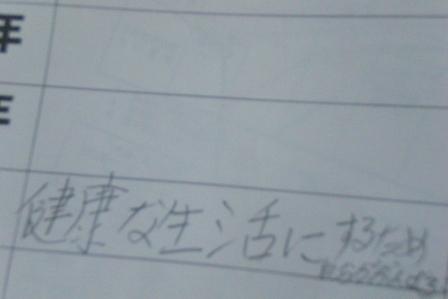 年
年
健康な生活にするため